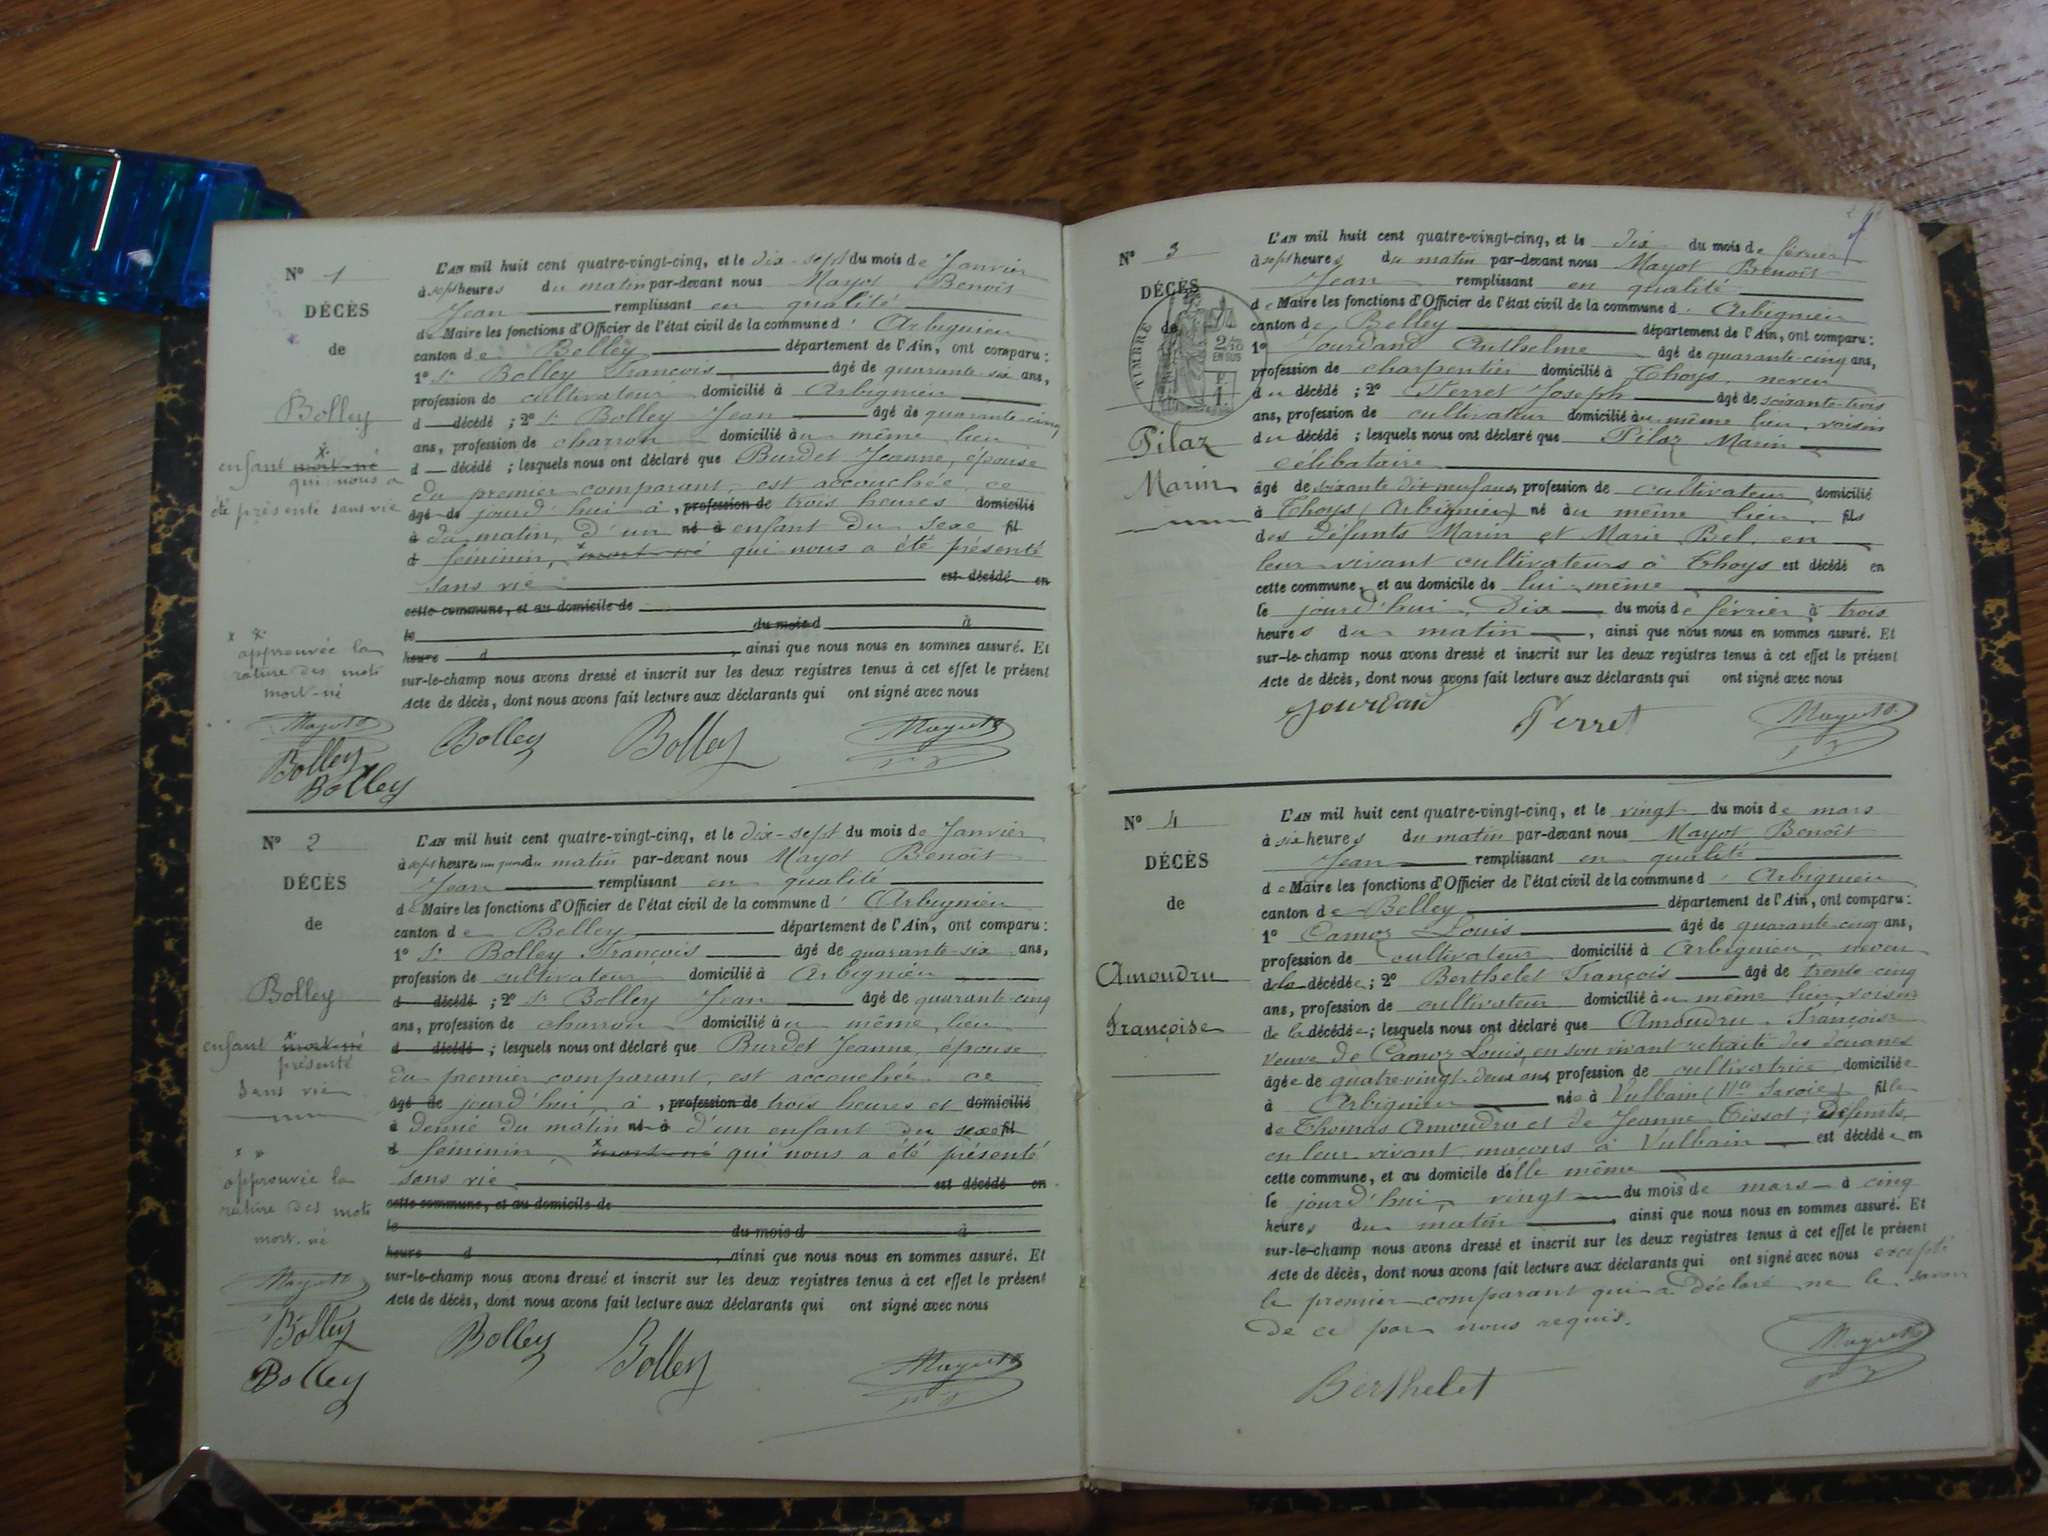 N° 1
DÉCÈS
de
Bolley
enfant mort-né
qui nous a
été présenté sans vie
x x
approuvée la
rature des mots
mort-né
Mayot B
Bolley
Bolley
L'AN mil huit cent quatre-vingt-cinq, et le dix-sept du mois de Janvier
à sept heures du matin par-devant nous Mayot Benoît
Jean remplissant en qualité
de Maire les fonctions d'Officier de l'état civil de la commune d' Arbignieu
canton de Belley département de l'Ain, ont comparu :
1° Sr Bolley François âgé de quarante-six ans,
profession de cultivateur domicilié à Arbignieu
d décédé ; 2° Sr Bolley Jean âgé de quarante-cinq
ans, profession de charron domicilié au même lieu
d décédé ; lesquels nous ont déclaré que Burdet Jeanne, épouse
du premier comparant, est accouchée ce
âgé de jourd'hui à , profession de trois heures domicilié
à du matin, d'un né à enfant du sexe fil
d féminin, mort-né qui nous a été présenté
sans vie est décédé en
cette commune, et au domicile de
le du mois d à
heure d , ainsi que nous nous en sommes assuré. Et
sur-le-champ nous avons dressé et inscrit sur les deux registres tenus à cet effet le présent
Acte de décès, dont nous avons fait lecture aux déclarants qui ont signé avec nous
Bolley Bolley Mayot B
N° 2
DÉCÈS
de
Bolley
enfant mort-né
présenté
sans vie
x x
approuvée la
rature des mots
mort-né
Mayot B
Bolley
Bolley
L'AN mil huit cent quatre-vingt-cinq, et le dix-sept du mois de Janvier
à sept heures un quart du matin par-devant nous Mayot Benoît
Jean remplissant en qualité
de Maire les fonctions d'Officier de l'état civil de la commune d' Arbignieu
canton de Belley département de l'Ain, ont comparu :
1° Sr Bolley François âgé de quarante-six ans,
profession de cultivateur domicilié à Arbignieu
d décédé ; 2° Sr Bolley Jean âgé de quarante-cinq
ans, profession de charron domicilié au même lieu
d décédé ; lesquels nous ont déclaré que Burdet Jeanne, épouse
du premier comparant, est accouchée ce
âgé de jourd'hui, à , profession de trois heures et domicilié
à demie du matin né à d'un enfant du sexe fil
d féminin, mort-né qui nous a été présenté
sans vie est décédé en
cette commune, et au domicile de
le du mois d à
heure d , ainsi que nous nous en sommes assuré. Et
sur-le-champ nous avons dressé et inscrit sur les deux registres tenus à cet effet le présent
Acte de décès, dont nous avons fait lecture aux déclarants qui ont signé avec nous
Bolley Bolley Mayot B
N° 3
DÉCÈS
de
TIMBRE
2/10
EN SUS
Pilaz
Marin
L'AN mil huit cent quatre-vingt-cinq, et le dix du mois de février
à sept heures du matin par-devant nous Mayot Benoît
Jean remplissant en qualité
de Maire les fonctions d'Officier de l'état civil de la commune d' Arbignieu
canton de Belley département de l'Ain, ont comparu :
1° Jourdand Anthelme âgé de quarante-cinq ans,
profession de charpentier domicilié à Thoys, neveu
du décédé ; 2° Perret Joseph âgé de soixante-trois
ans, profession de cultivateur domicilié au même lieu, voisin
du décédé ; lesquels nous ont déclaré que Pilaz Marin
célibataire
âgé de soixante dix neuf ans, profession de cultivateur domicilié
à Thoys (Arbignieu) né au même lieu, fils
des défunts Marin et Marie Bel, en
leur vivant cultivateurs à Thoys est décédé en
cette commune, et au domicile de lui-même
le jourd'hui, dix du mois de février à trois
heures du matin , ainsi que nous nous en sommes assuré. Et
sur-le-champ nous avons dressé et inscrit sur les deux registres tenus à cet effet le présent
Acte de décès, dont nous avons fait lecture aux déclarants qui ont signé avec nous
Perret Mayot B
N° 4
DÉCÈS
de
Amoudru
Françoise
L'AN mil huit cent quatre-vingt-cinq, et le vingt du mois de mars
à six heures du matin par-devant nous Mayot Benoît
Jean remplissant en qualité
de Maire les fonctions d'Officier de l'état civil de la commune d' Arbignieu
canton de Belley département de l'Ain, ont comparu :
1° Camoz Louis âgé de quarante-cinq ans,
profession de cultivateur domicilié à Arbignieu, neveu
de la décédée ; 2° Berthelet François âgé de trente-cinq
ans, profession de cultivateur domicilié au même lieu, voisin
de la décédée ; lesquels nous ont déclaré que Amoudru Françoise
veuve de Camoz Louis, en son vivant retraité des douanes
âgée de quatre-vingt-deux ans, profession de cultivatrice domiciliée
à Arbignieu née à Vulbain (Hte Savoie) fille
de Thomas Amoudru et de Jeanne Tissot, défunts,
en leur vivant maçons à Vulbain est décédée en
cette commune, et au domicile d'elle même
le jourd'hui, vingt du mois de mars à cinq
heures du matin , ainsi que nous nous en sommes assuré. Et
sur-le-champ nous avons dressé et inscrit sur les deux registres tenus à cet effet le présent
Acte de décès, dont nous avons fait lecture aux déclarants qui ont signé avec nous excepté
le premier comparant qui a déclaré ne le savoir
de ce par nous requis.
Berthelet Mayot B